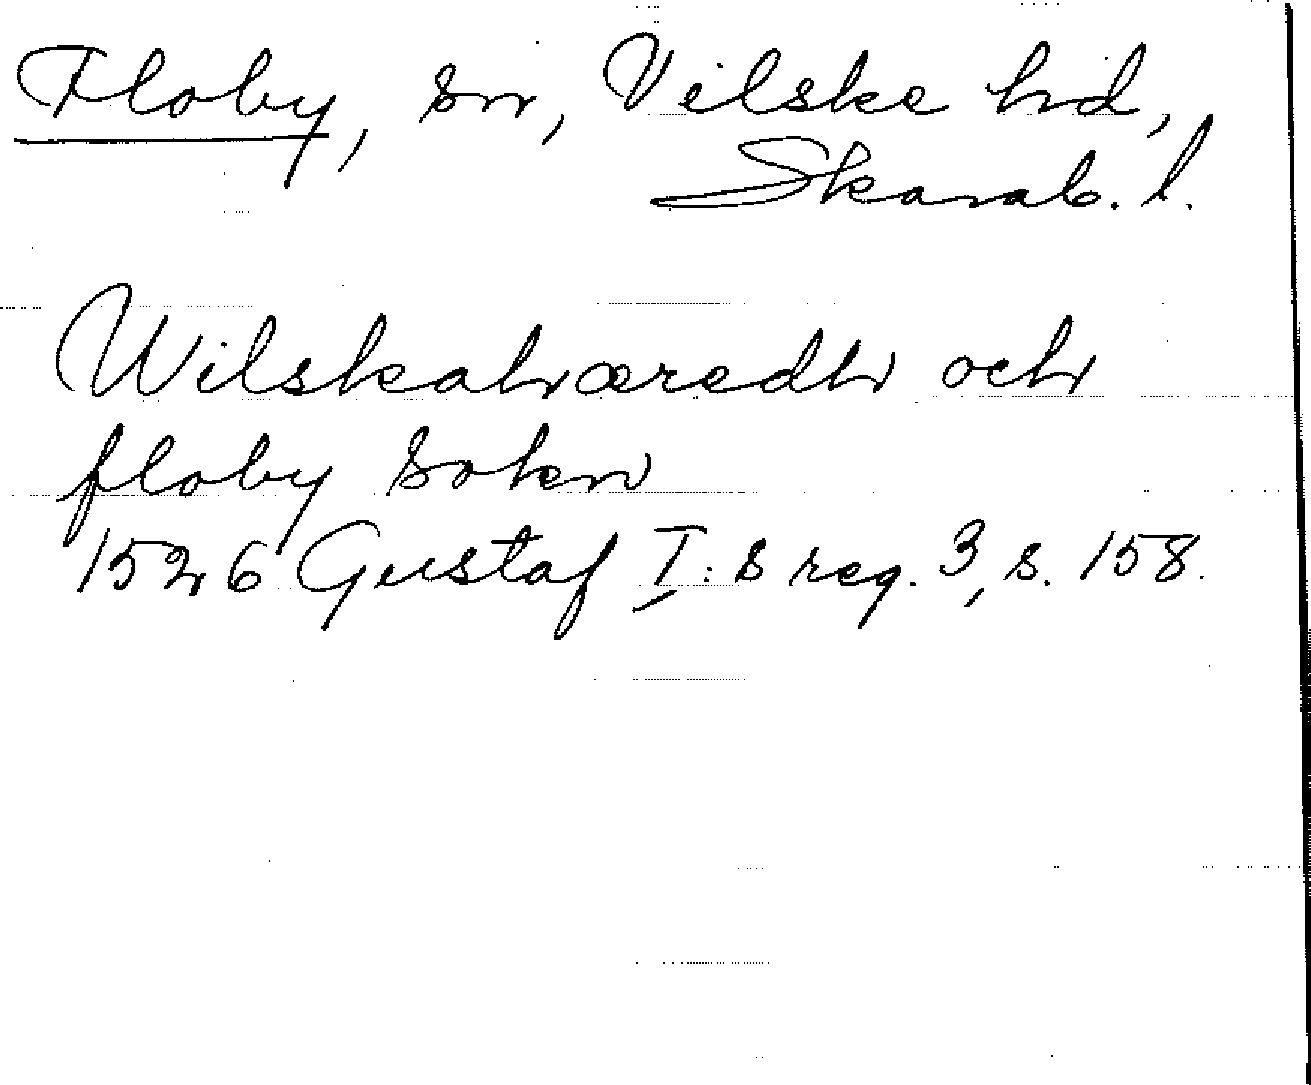 Floby, sn, Vilske hd,
Skarab. l.
Wilskahæredh och
floby sokn
1526 Gustaf I:s reg. 3, s. 158.